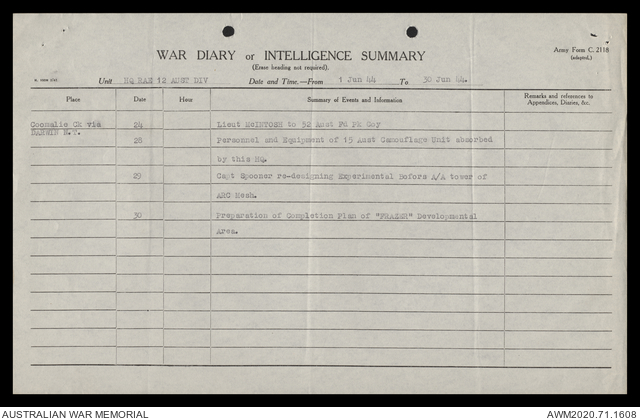 Army Form C. 2118
(adapted.)
WAR DIARY or INTELLIGENCE SUMMARY
(Erase heading not required).
Unit HQ RAE 12 AUST DIV Date and Time.—From 1 Jun 44 To 30 Jun 44.
Place Date Hour Summary of Events and Information Remarks and references to Appendices, Diaries, &c.
Coomalie Ck via 24 Lieut McINTOSH to 32 Aust Fd Pk Coy
DARWIN N.T.
28 Personnel and Equipment of 15 Aust Camouflage Unit absorbed
by this HQ.
29 Capt Spooner re-designing Experimental Bofors A/A tower of
ARC Mesh.
30 Preparation of Completion Plan of "FRAZER" Developmental
Area.
AUSTRALIAN WAR MEMORIAL AWM2020.71.1608